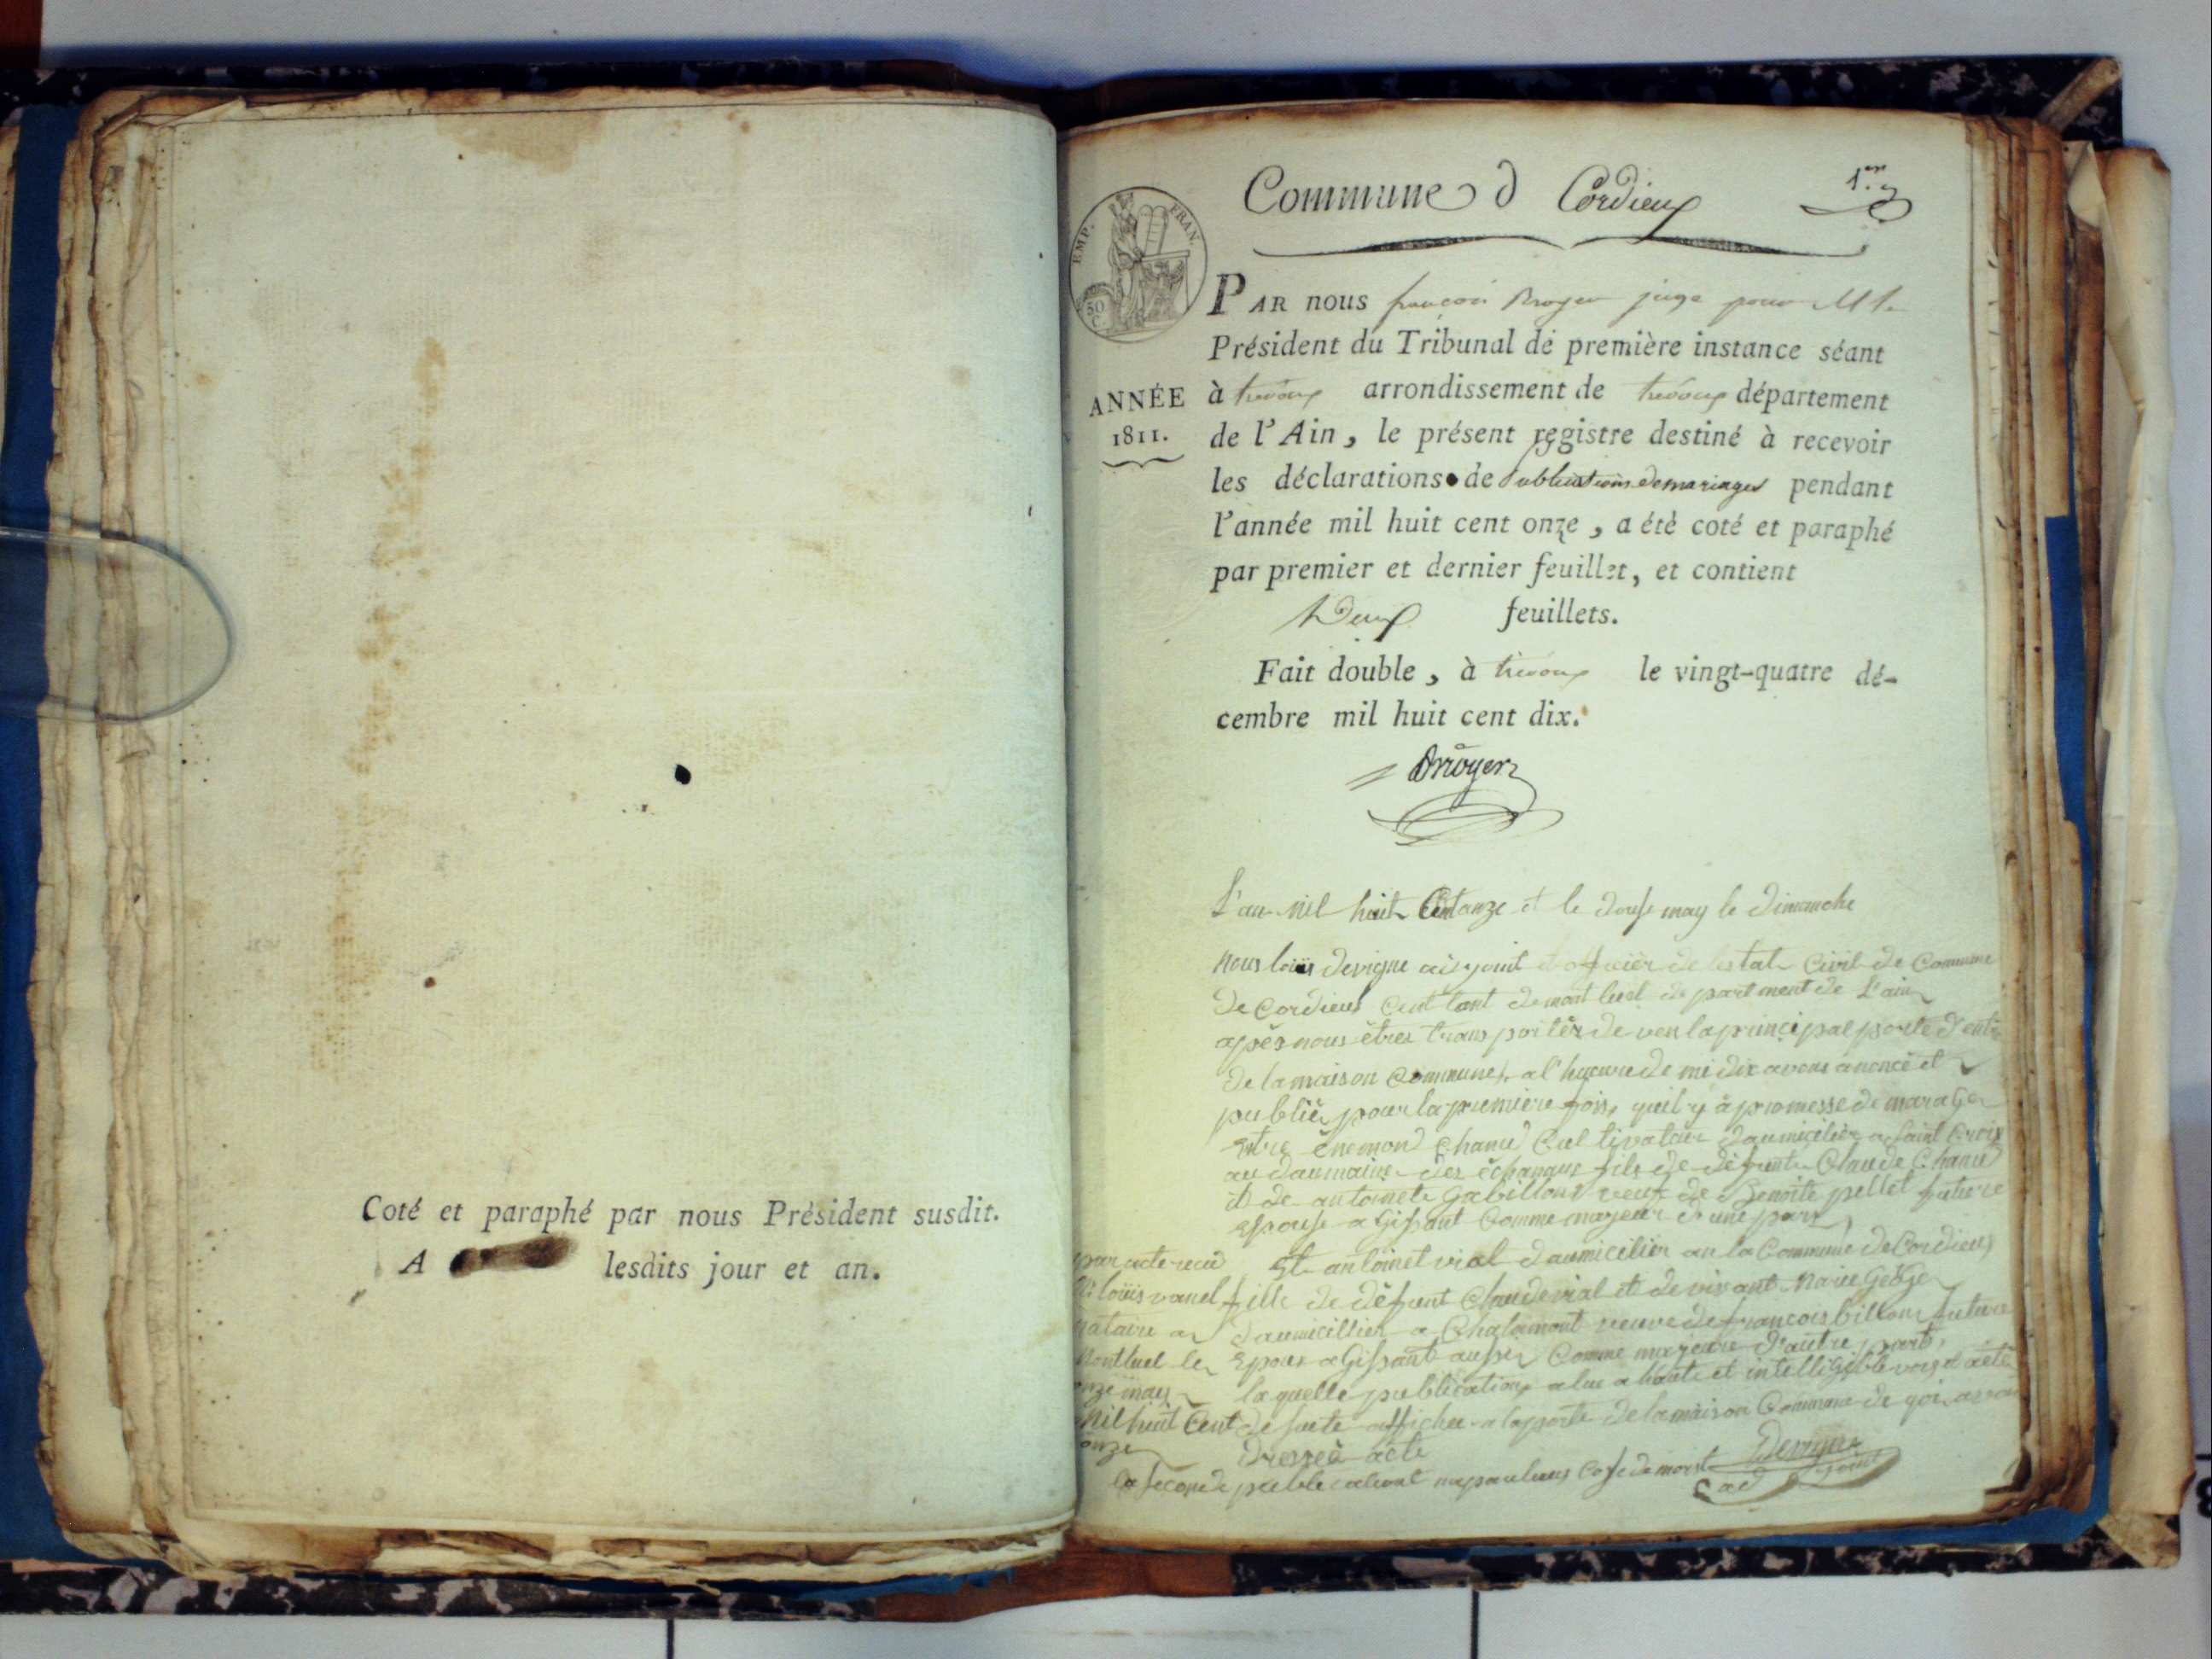 Coté et paraphé par nous Président susdit.
A lesdits jour et an.
Commune d Cordieux
1.er
EMP. FRAN.
50 C
PAR nous françois Broyer juge pour M le
Président du Tribunal de première instance séant
à trévoux arrondissement de trévoux département
ANNÉE
1811.
de l'Ain, le présent registre destiné à recevoir
les déclarations de publications de mariages pendant
l'année mil huit cent onze, a été coté et paraphé
par premier et dernier feuillet, et contient
Deux feuillets.
Fait double, à trévoux le vingt-quatre dé-
cembre mil huit cent dix.
Broyer
L'an mil huit Cent onze et le douse may le dimanche
nous loüis devigne adjoint et officier de lestat Civil de Commune
de Cordieux Cant tont de mont luel de partment de L'ain
après nous êtres trans portér de ven la principal porte d'entre
de la maison Commune, a l'heure de mi di avons anoncé et
publiér pour la première fois, quil y à promesse de marage
Entre énemon Chanu Cul tivateur daumicilier a saint Croix
au daumaine des échanaux fils de défunt Claude Chanu
et de antoinete Gabillon veuf de Benoite pellet future
Epouse a Gissant Comme majeur d'une part,
Et antoinet vial daumicilier an la Commune de Cordieux
fille de défunt Claude vial et de vivant Marie Geoge
daumicillier a Chalamont veuve de francois billon future
Epoux a Gissant aussi Comme majeure d'autre part,
la quelle publication a lue a haute et intelligible voix et a été
de suete afficher a la porte de la maison Commune de qoi avons
dresseé acte
par acte recu
loüis vanel
nataire a
Montluel le
onze may
Mil huit Cent
onze
La seconde publication
Devigne
ad joint